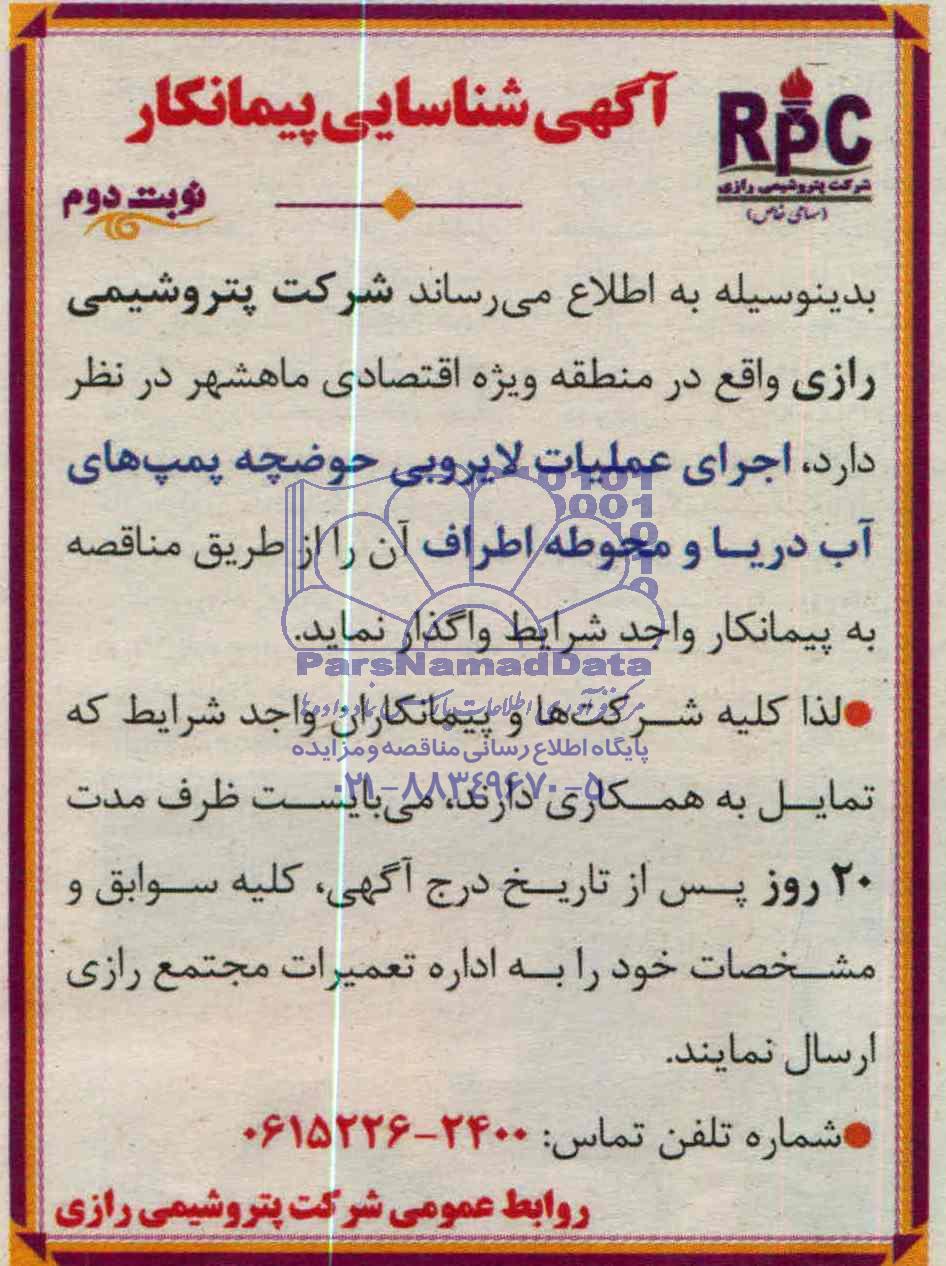 آگهی شناسایی پیمانکار
RPC
شرکت پتروشیمی رازی
(سهامی خاص)
نوبت دوم
بدینوسیله به اطلاع می‌رساند شرکت پتروشیمی
رازی واقع در منطقه ویژه اقتصادی ماهشهر در نظر
دارد، اجرای عملیات لایروبی حوضچه پمپ‌های
آب دریا و محوطه اطراف آن را از طریق مناقصه
به پیمانکار واجد شرایط واگذار نماید.
ParsNamadData
●لذا کلیه شرکت‌ها و پیمانکاران واجد شرایط که
پایگاه اطلاع رسانی مناقصه و مزایده
۰۲۱-۸۸۳۴۹۶۷۰-۵
تمایل به همکاری دارند، می‌بایست ظرف مدت
۲۰ روز پس از تاریخ درج آگهی، کلیه سوابق و
مشخصات خود را به اداره تعمیرات مجتمع رازی
ارسال نمایند.
●شماره تلفن تماس: ۲۴۰۰-۰۶۱۵۲۲۶
روابط عمومی شرکت پتروشیمی رازی